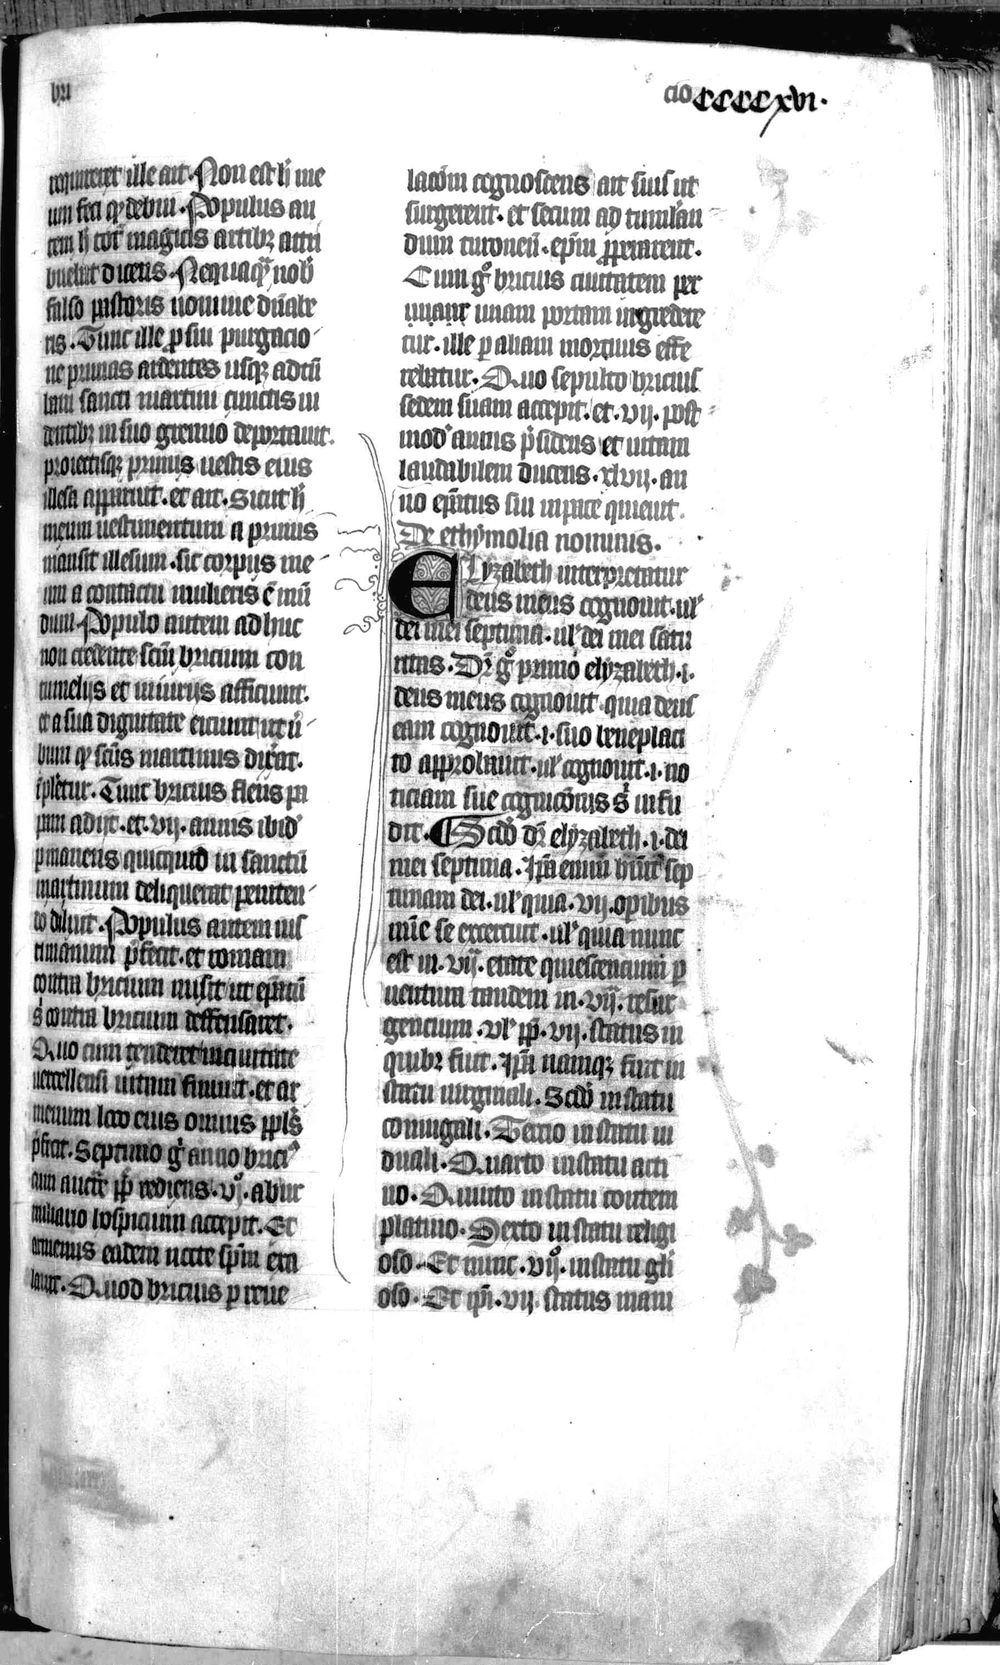 bri
cio CCCCxvi.
coniuraret ille ait. Non est hͦ me
um feci qͥ debui. Populus au
tem hͦ totͫ magicis artibꝫ attri
buebat dicens. Nequaqͣ nobͥ
falso pastoris nomine dn̄abe
ris. Tunc ille ꝓ sui purgacio
ne prunas ardentes usqꝫ ad tū
bam sancti martini cunctis ui
dentibꝫ in suo gremio deportauit.
proiectisqꝫ prunis uestis eius
illesa apparuit. et ait. Sicut hͦ
meum uestimentum a prunis
mansit illesum. sic corpus me
um a contactu mulieris ē mū
dum. Populo autem adhuc
non credente scm̄ bricium con
tumelijs et iniurijs afficiunt.
et a sua dignitate eiciunt ut ū
bum qͥ scūs martinus dixͣat.
ı̄pletur. Tunc bricius flens pa
pam adijt. et. vij. annis ibidͫ
ꝑmanens quicquid in sanctū
martinum deliquerat peniten
do diluit. Populus autem ius
tinianum p̄fecit. et romam
contra bricium misit ut ep̄atū
sͥ contra bricium deffensaret.
Quo cum tenderet in ciuitate
uercellensi uitam finiuit. et ar
menium loco eius omnis ppl̄s
p̄fecit. Septimo gͦ anno brici
cum auctͭe pp̄ rediens. vj. ab ur
miliario hospicium accepit. Et
armenus eadem nocte spm̄ exa
lauit. Quod bricius ꝑ reue
lacōm cognoscens ait suis ut
surgerent. et secum ad tumulan
dum turonen̄. ep̄m properarent.
Cum gͦ bricius ciuitatem per
unam portam ingredere
tur. ille ꝑ aliam mortuus effe
rebatur. Quo sepulto bricius
sedem suam accepit. et. vij. post
modͫ annis p̄sidens et uitam
laudabilem ducens. xlvij. an
no ep̄atus sui in pace quieuit.
De ethymolia nominis.
Elyzabeth interpretatur
deus meus cognouit. ul̓
dei mei septima. ul̓ dei mei satu
ritas. Dr̄ gͦ primo elyzabeth. i.
deus meus cognouit. quia deus
eam cognouit. i. suo beneplaci
to approbauit. ul̓ cognouit. i. no
ticiam sue cognicōnis sͥ infu
dit. ¶ Scd̓o dr̄ elyzabeth. i. dei
mei septima. Ip̄a enim hūit sep
timam dei. ul̓ quia. vij. opibus
mīe se exercuit. ul̓ quia nunc
est in. vij. etate quiescencium ꝑ
uentura tandem in. viij. resur
gencium. Ul̓ ꝓp̄. vij. status in
quibꝫ fuit. Ip̄a namqꝫ fuit in
statu uirginali. Scd̓o in statu
coniugali. Tercio in statu ui
duali. Quarto in statu acti
uo. Quinto in statu contem
platiuo. Sexto in statu religi
oso. Et nunc. vijͦ. in statu gli
oso. Et qn̄. vij. status mani